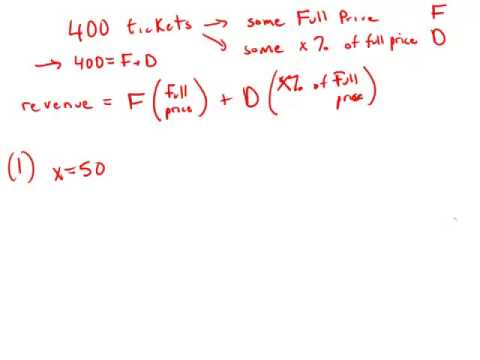 400 tickets → some Full Price F
some x% of full price D
→ 400 = F + D
revenue = F (full price) + D (x% of Full price)
(1) x = 50